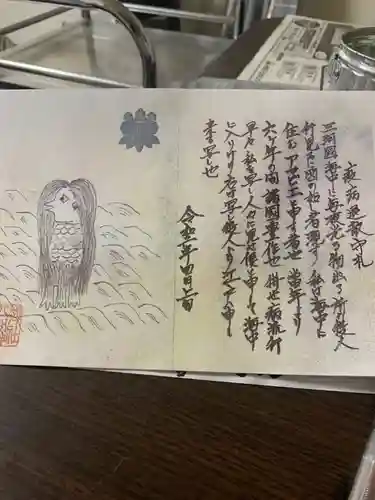 疫病退散御札
三州國海中に毎夜光る物出る 所の役人
行見る図の如く者現す 私ハ海中に
住む アマビエ 申す者也 当年より
六ヶ年の間 諸國豊作也 併せ病流行
早々私ヲ写し人々に見セ候得と申して 海中
に入りけり 右写し役人より江戸へ申し
来る写し也
令和二年四月吉日